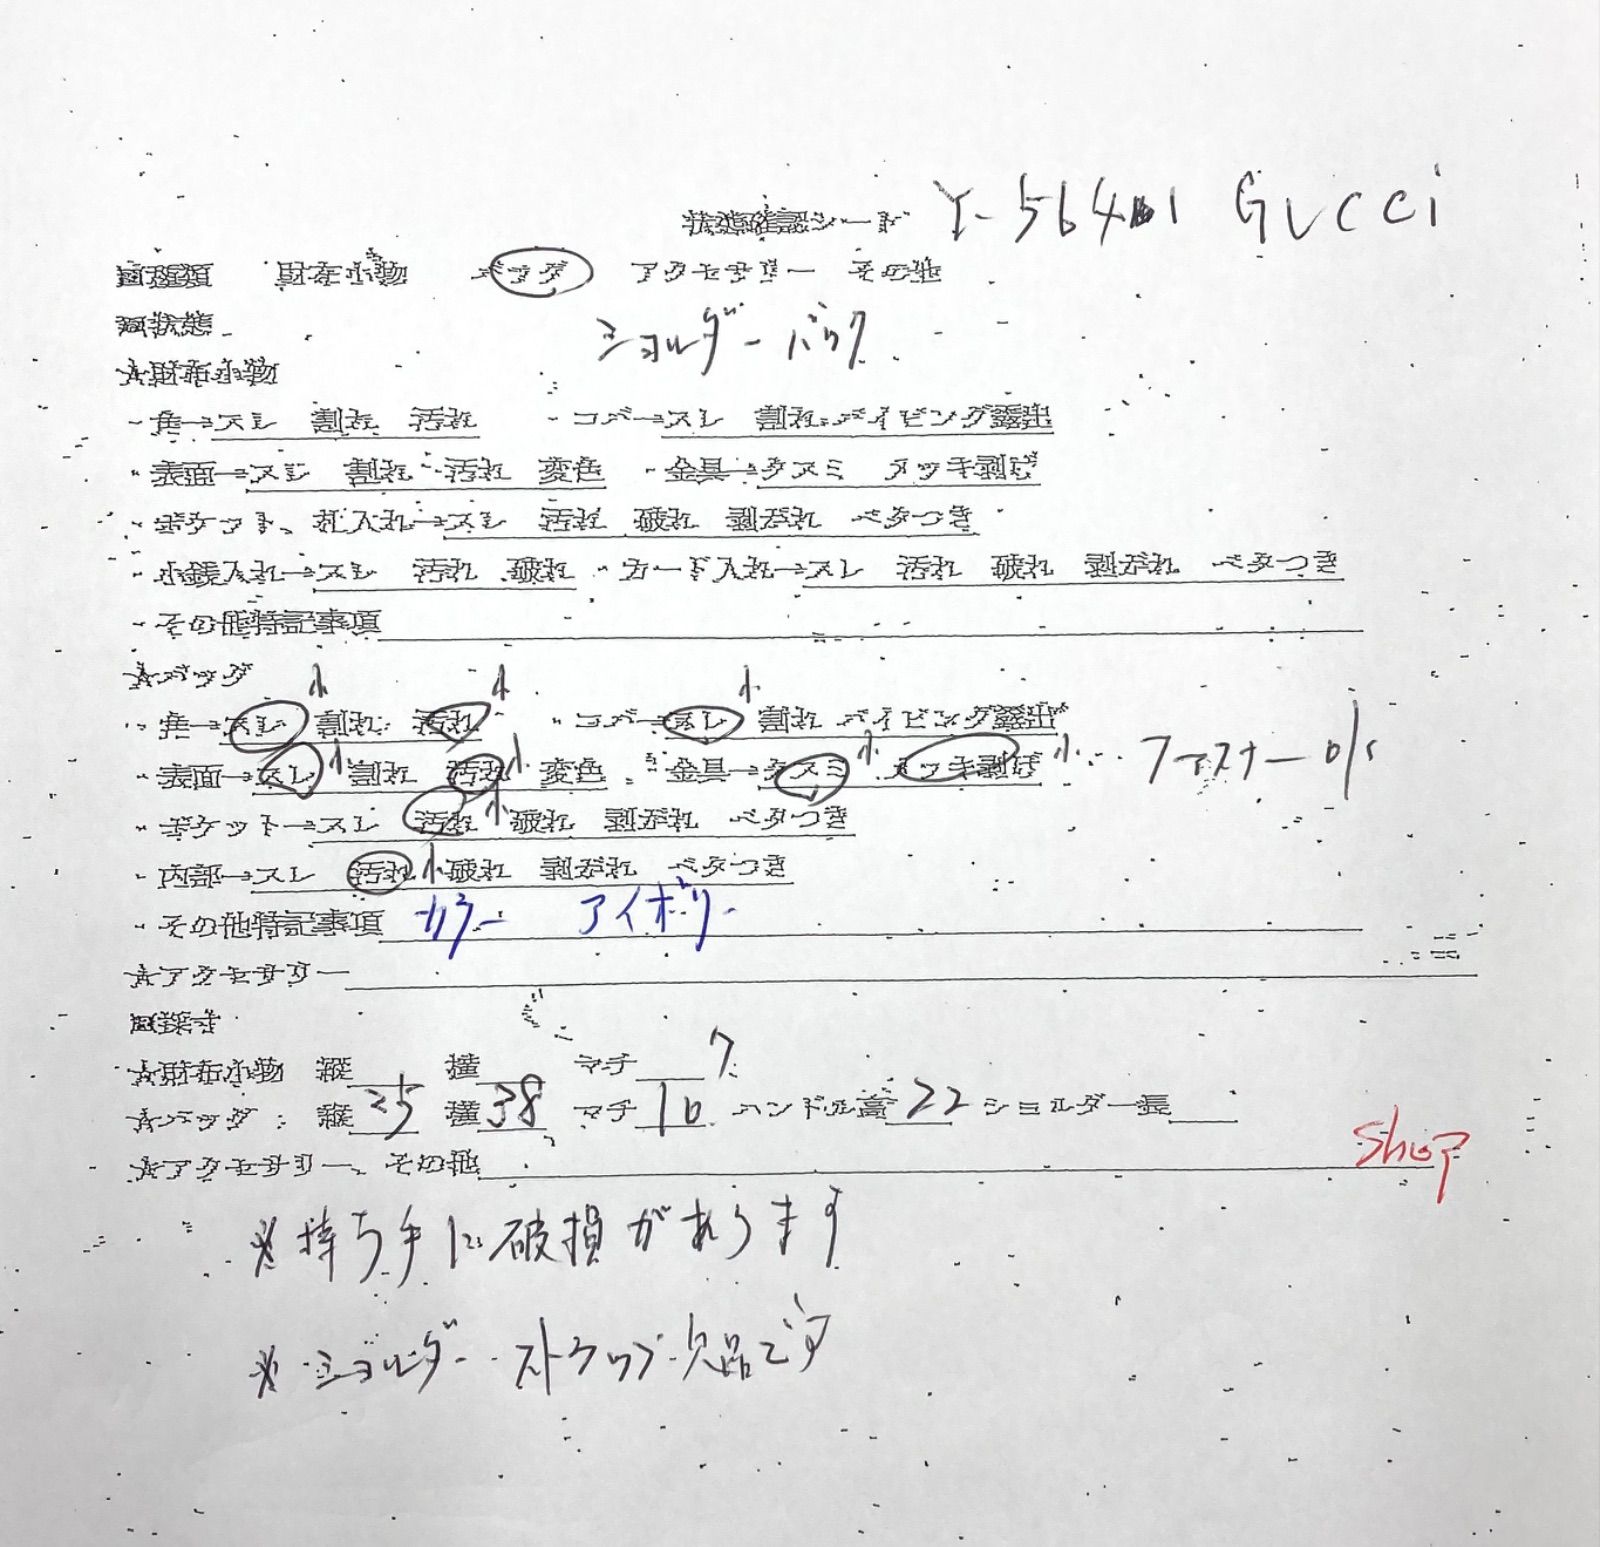 状態確認シート Y-56401 GUCCI
■種類 財布小物 バッグ アクセサリー その他
■状態 ショルダーバック
☆財布小物
・角→スレ 割れ 汚れ ・コバ→スレ 割れ パイピング露出
・表面→スレ 割れ 汚れ 変色 ・金具→クスミ メッキ剥げ
・ポケット、札入れ→スレ 汚れ 破れ 剥がれ ベタつき
・小銭入れ→スレ 汚れ 破れ ・カード入れ→スレ 汚れ 破れ 剥がれ ベタつき
・その他特記事項
☆バッグ
・角→スレ小 割れ 汚れ小 ・コバ→スレ小 割れ パイピング露出
・表面→スレ小 割れ 汚れ小 変色 ・金具→クスミ小 メッキ剥げ小 … ファスナー
・ポケット→スレ 汚れ小 破れ 剥がれ ベタつき
・内部→スレ 汚れ小 破れ 剥がれ ベタつき
・その他特記事項 カラー アイボリー
☆アクセサリー
■採寸
☆財布小物 縦 横 マチ 7
☆バッグ 縦 25 横 38 マチ 10 ハンドル高 22 ショルダー長
☆アクセサリー、その他 Shop
※持ち手に破損があります
※ショルダーストラップ欠品です